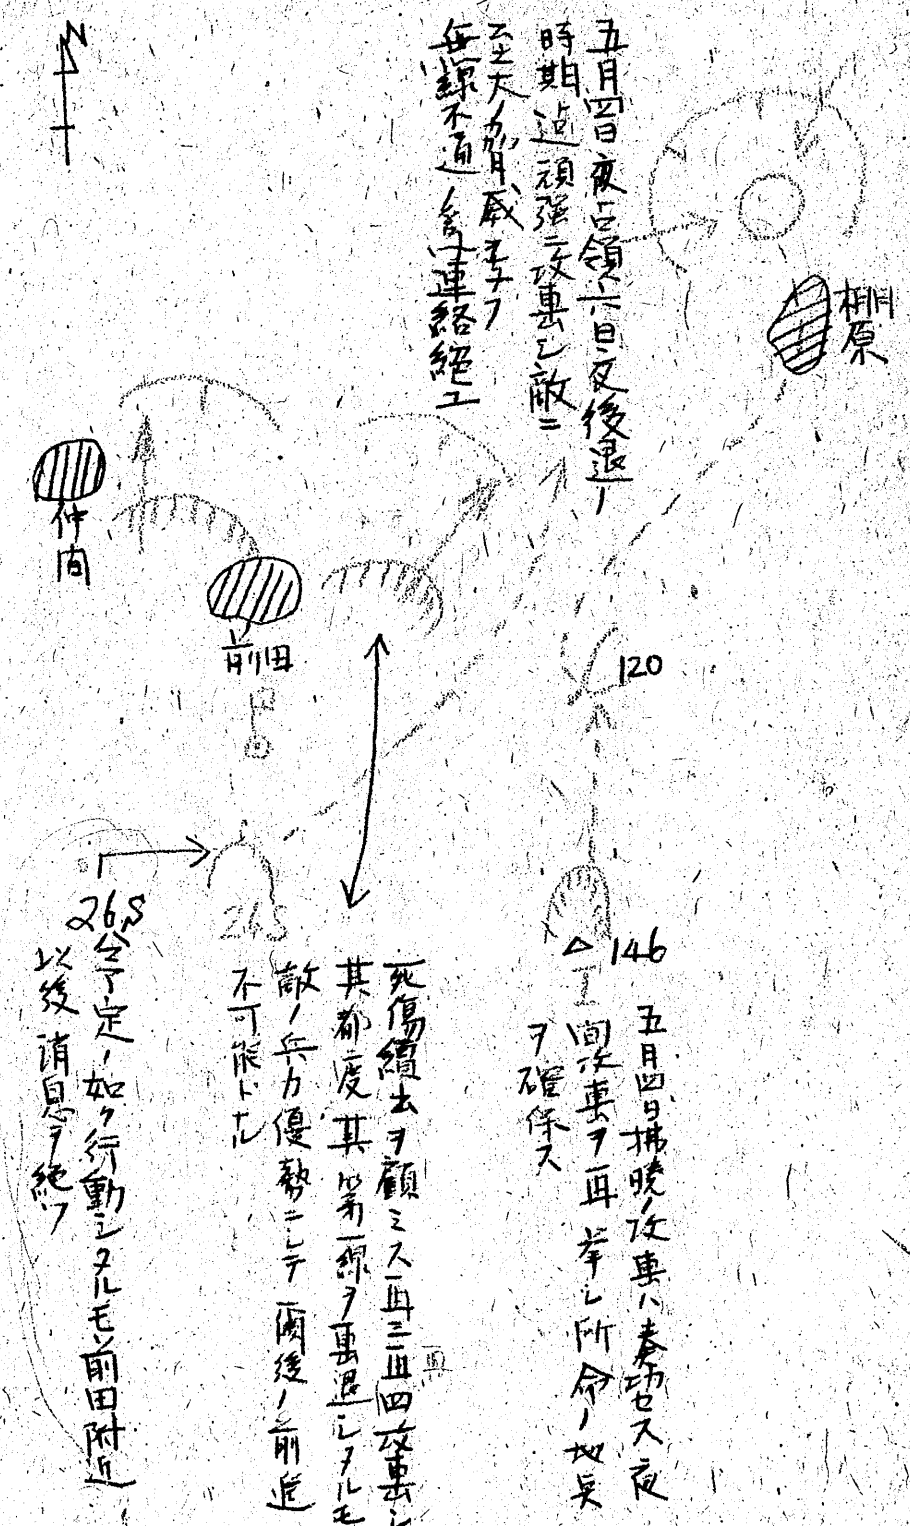 N
五月四日夜占領六日夜後退ノ
時期迄頑強ニ攻撃シ敵ニ
至大ノ脅威ヲ与フ
無線不通ノ為連絡絶ユ
棚原
仲間
前田
120
26S
24S
146
五月四日拂曉ノ攻撃ハ奏功セス夜
間攻撃ヲ再挙シ所命ノ地点
ヲ確保ス
死傷續出ヲ顧ミス再三再四攻撃シ
其都度其第一線ヲ撃退シタルモ
敵ノ兵力優勢ニシテ爾後ノ前進
不可能トナル
予定ノ如ク行動シタルモ前田附近
以後消息ヲ絶ツ